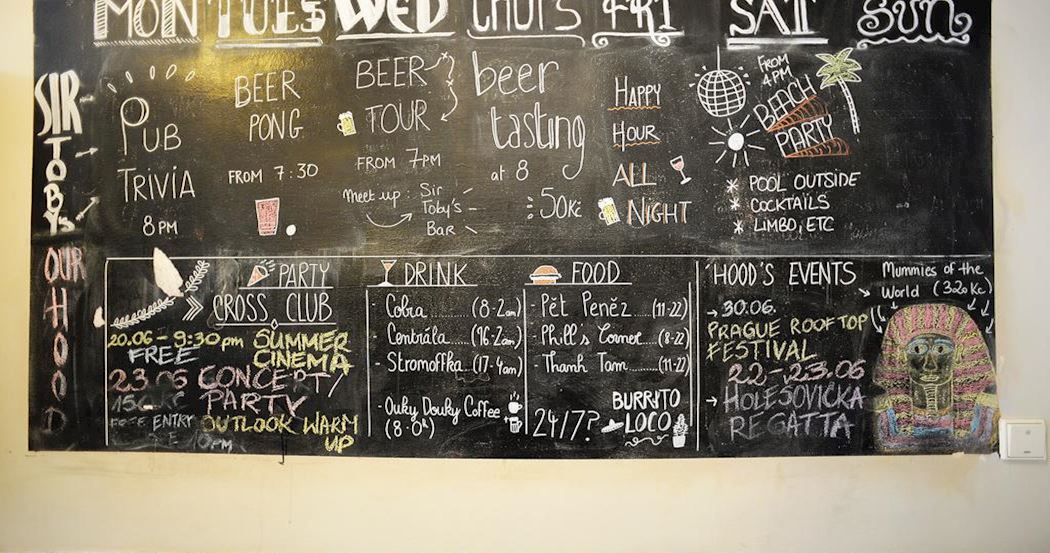 MON TUES WED THURS FRI SAT SUN
SIR
TOBYS
PUB
TRIVIA
8PM
BEER
PONG
FROM 7:30
BEER
TOUR
FROM 7PM
Meet up: Sir
Toby's
Bar
beer
tasting
at 8
50Kč
HAPPY
HOUR
ALL
NIGHT
FROM
4PM
BEACH
PARTY
* POOL OUTSIDE
* COCKTAILS
* LIMBO, ETC
OUR
HOOD
PARTY
CROSS CLUB
20.06 - 9:30pm SUMMER
FREE CINEMA
23.06 CONCEPT/
PARTY
FREE ENTRY OUTLOOK WARM
10PM UP
DRINK
- Cobra ...... (8-2am)
- Centrála ...... (16-2am)
- Stromoffka ... (17-4am)
- Ouky Douky Coffee
(8-0h)
FOOD
- Pět Peněz ... (11-22)
- Phill's Corner ... (8-22)
- Thanh Tam ...... (11-22)
24/7? BURRITO
LOCO
'HOOD'S EVENTS
→ 30.06.
PRAGUE ROOFTOP
FESTIVAL
22-23.06
→ HOLEŠOVIČKA
REGATTA
Mummies of the
World (320Kč)